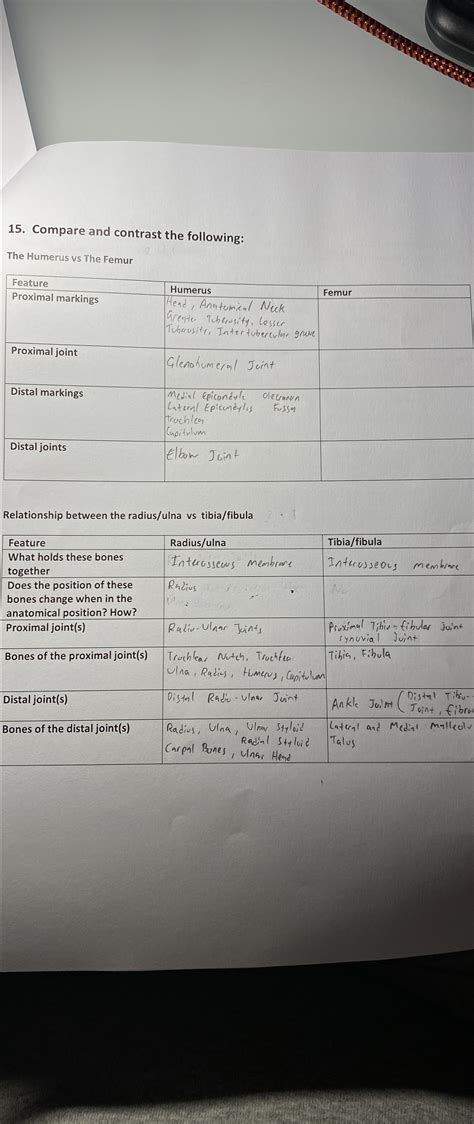 15. Compare and contrast the following:
The Humerus vs The Femur
Feature Humerus Femur
Proximal markings Head, Anatomical Neck
Greater Tuberosity, Lesser
Tuberosity, Intertubercular
Proximal joint Glenohumeral Joint
Distal markings Medial Epicondyle Olecranon
Lateral Epicondylis Fossa
Trochlea
Capitulum
Distal joints Elbow Joint
Relationship between the radius/ulna vs tibia/fibula
Feature Radius/ulna Tibia/fibula
What holds these bones together Interosseous Membrane Interosseous membrane
Does the position of these Radius No
bones change when in the
anatomical position? How?
Proximal joint(s) Radio-Ulnar Joints Proximal Tibio-fibular Joint
synovial Joint
Bones of the proximal joint(s) Trochlear Notch, Trochlea Tibia, Fibula
Ulna, Radius, Humerus, Capitulum
Distal joint(s) Distal Radio-Ulnar Joint Ankle Joint (Distal
Joint,
Bones of the distal joint(s) Radius, Ulna, Ulnar Styloid Lateral and Medial
Radial Styloid Talus
Carpal Bones, Ulnar Head